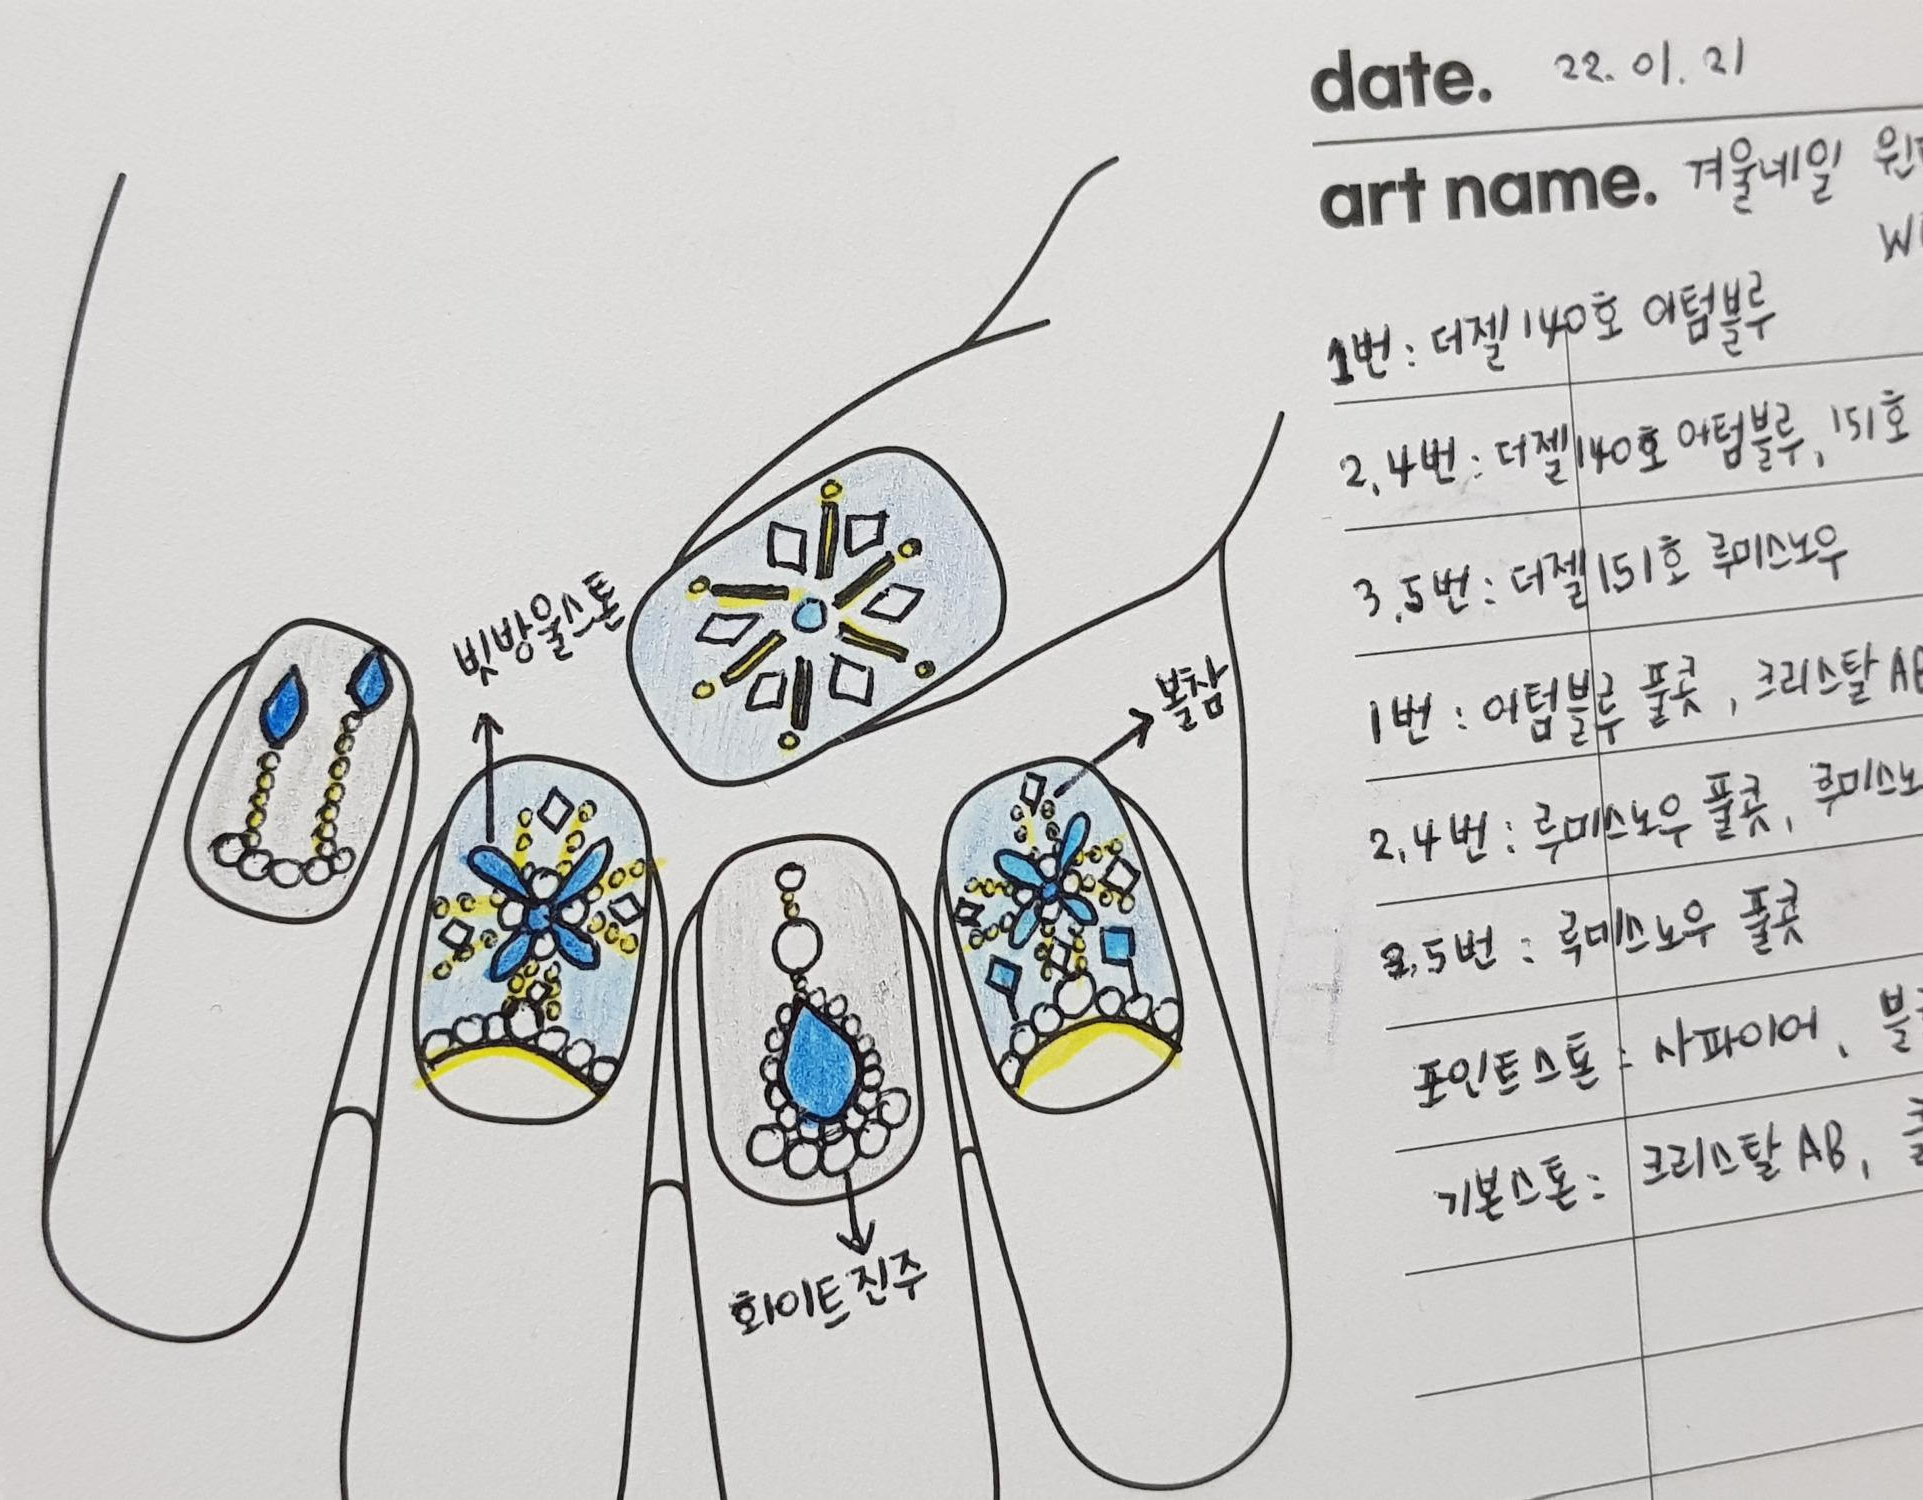 date. 22. 01. 21
art name. 겨울네일
1번 : 더젤 140호 어텀블루
2,4번 : 더젤 140호 어텀블루, 151호
3,5번 : 더젤 151호 루미스노우
1번 : 어텀블루 풀콧, 크리스탈 AB
2,4번 : 루미스노우 풀콧,
3,5번 : 루미스노우 풀콧
포인트스톤 : 사파이어,
기본스톤 : 크리스탈 AB,
빗방울스톤
볼참
화이트진주